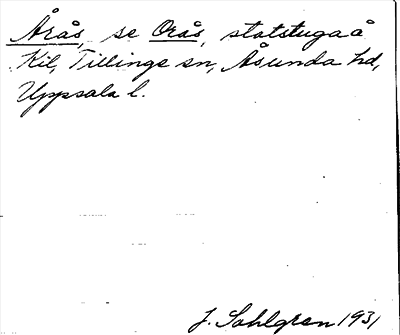 Årås, se Orås, statstuga å
Kil, Tillinge sn, Åsunda hd,
Uppsala l.
J. Sahlgren 1931